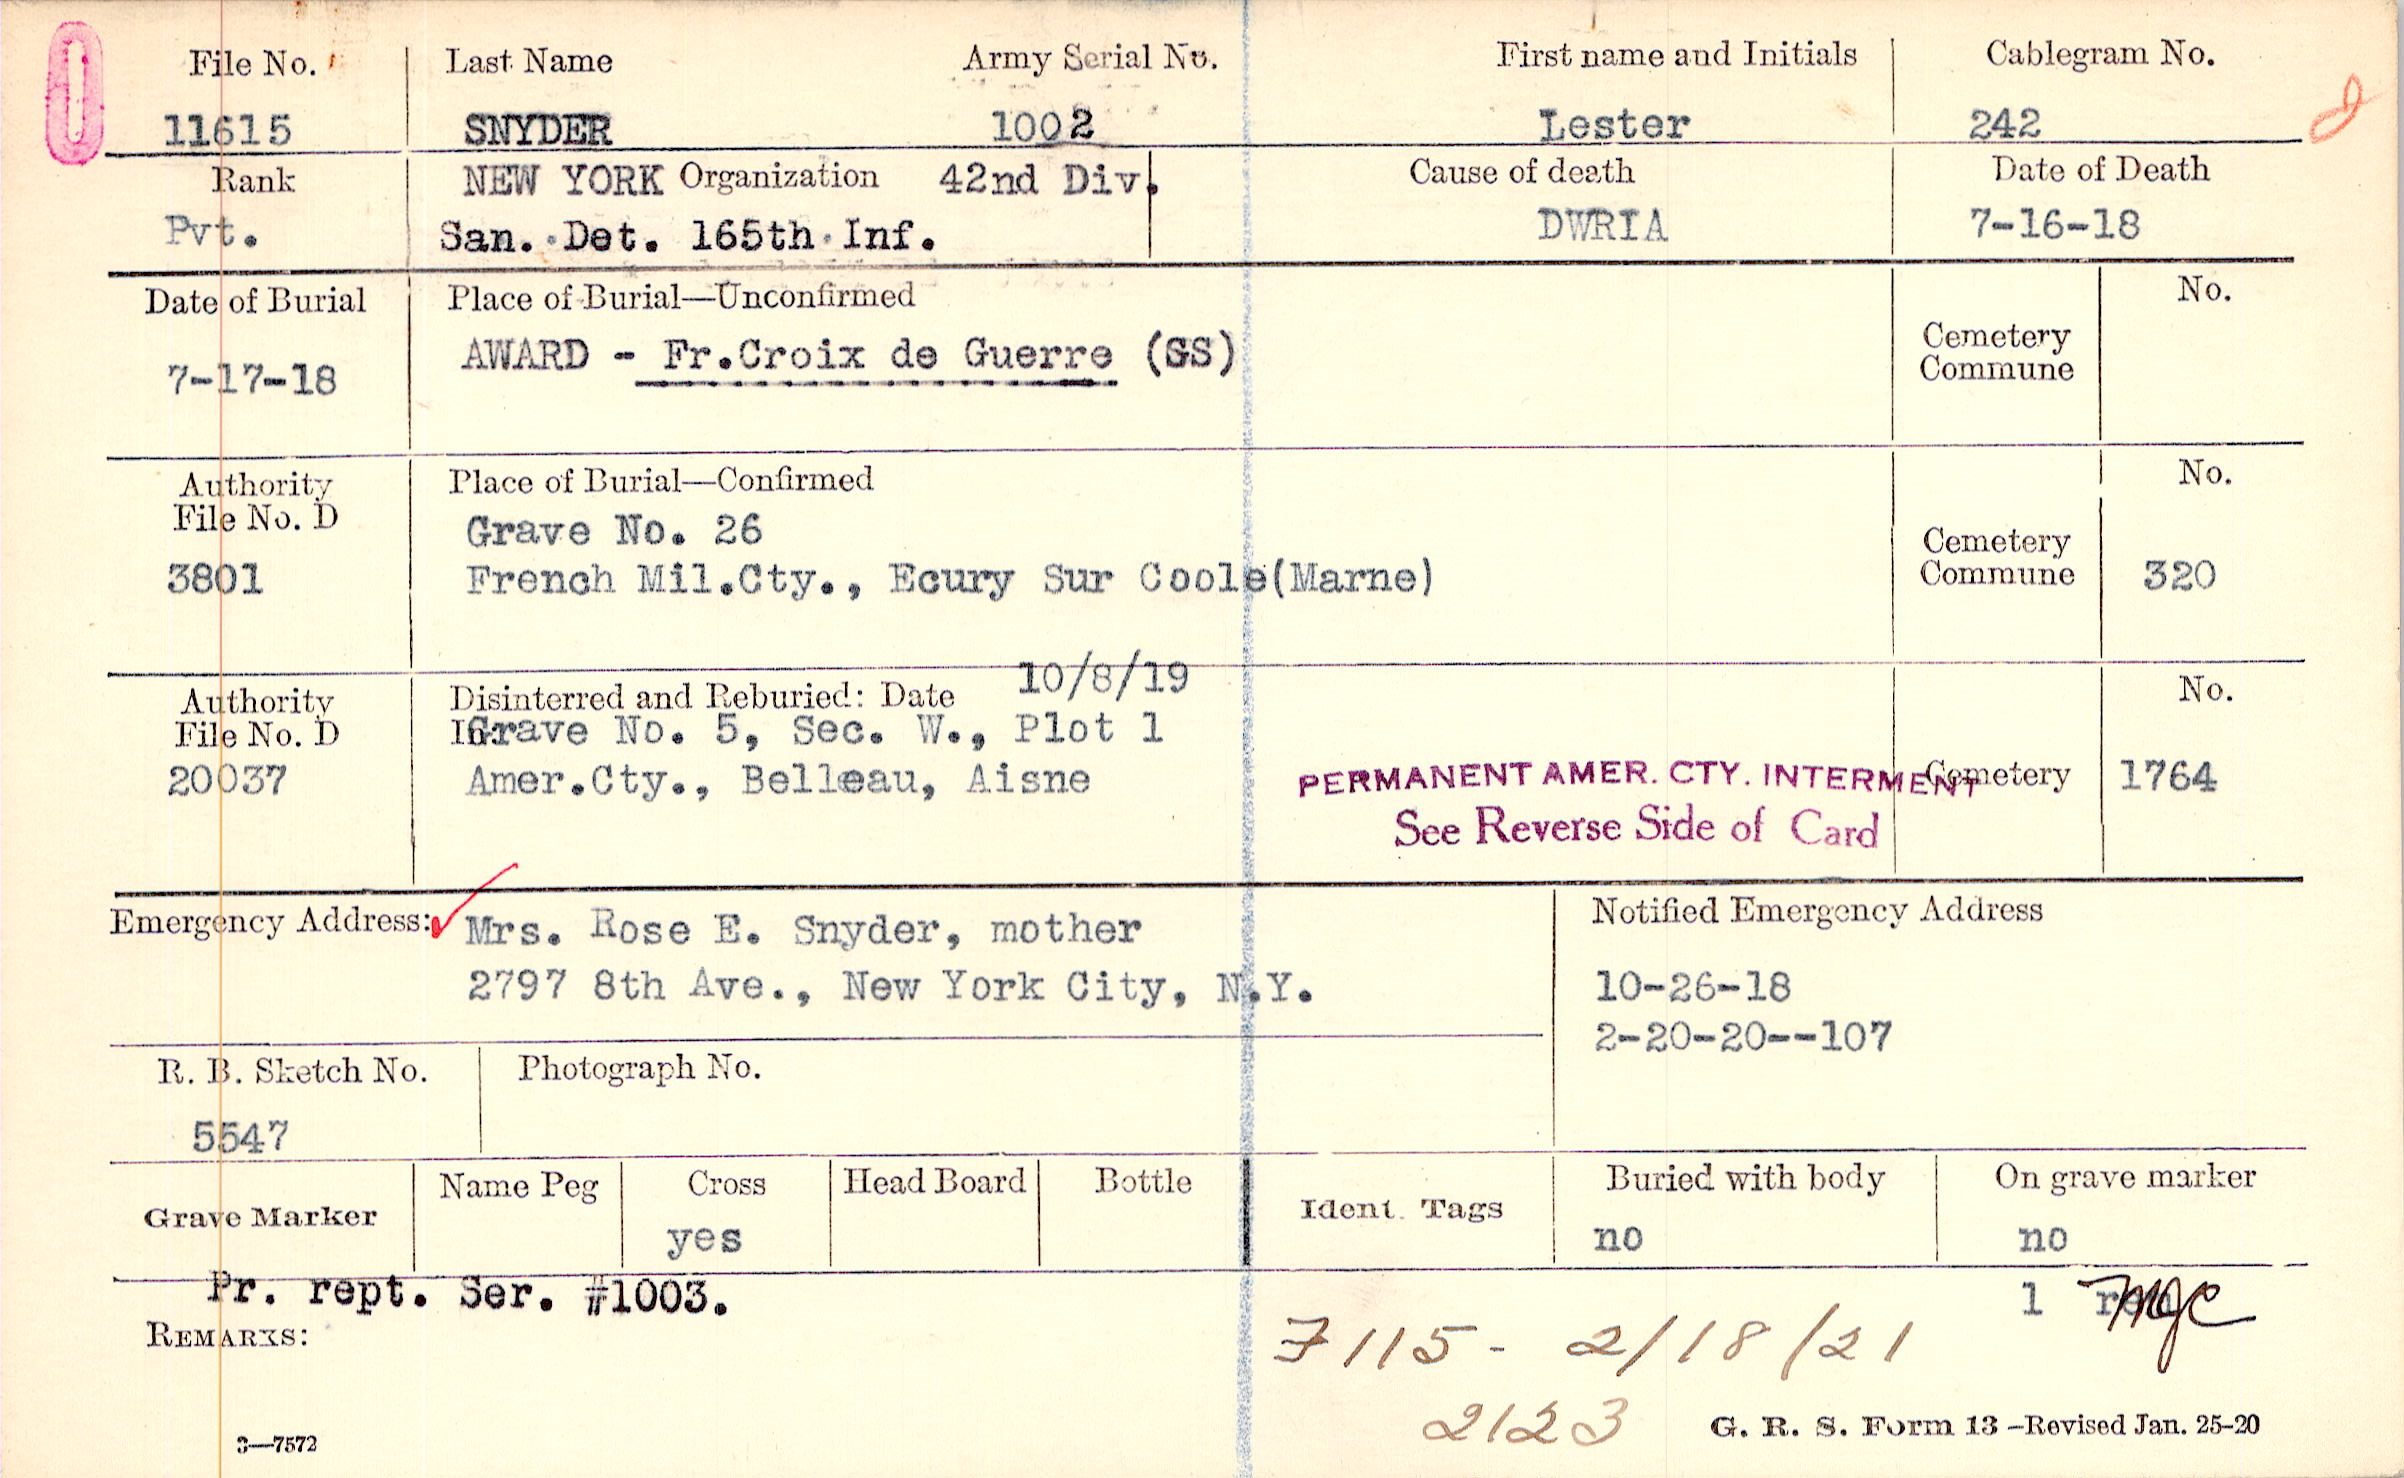 File No. Last Name Army Serial No. First name and Initials Cablegram No.
11615 SNYDER 1002 Lester 242
Rank NEW YORK Organization 42nd Div. Cause of death Date of Death
Pvt. San. Det. 165th Inf. DWRIA 7-16-18
Date of Burial Place of Burial—Unconfirmed No.
7-17-18 AWARD - Fr.Croix de Guerre (GS) Cemetery
Commune
Authority Place of Burial—Confirmed No.
File No. D Grave No. 26 Cemetery
3801 French Mil.Cty., Ecury Sur Coole(Marne) Commune 320
Authority Disinterred and Reburied: Date 10/8/19 No.
File No. D In Grave No. 5, Sec. W., Plot 1
20037 Amer.Cty., Belleau, Aisne PERMANENT AMER. CTY. INTERMENT Cemetery 1764
See Reverse Side of Card
Emergency Address: Mrs. Rose E. Snyder, mother Notified Emergency Address
2797 8th Ave., New York City, N.Y. 10-26-18
2-20-20--107
R. B. Sketch No. Photograph No.
5547
Grave Marker Name Peg Cross Head Board Bottle Ident. Tags Buried with body On grave marker
yes no no
Pr. rept. Ser. #1003. 1
REMARKS: 7115 - 2/18/21
2123
3—7572 G. R. S. Form 13—Revised Jan. 25-20